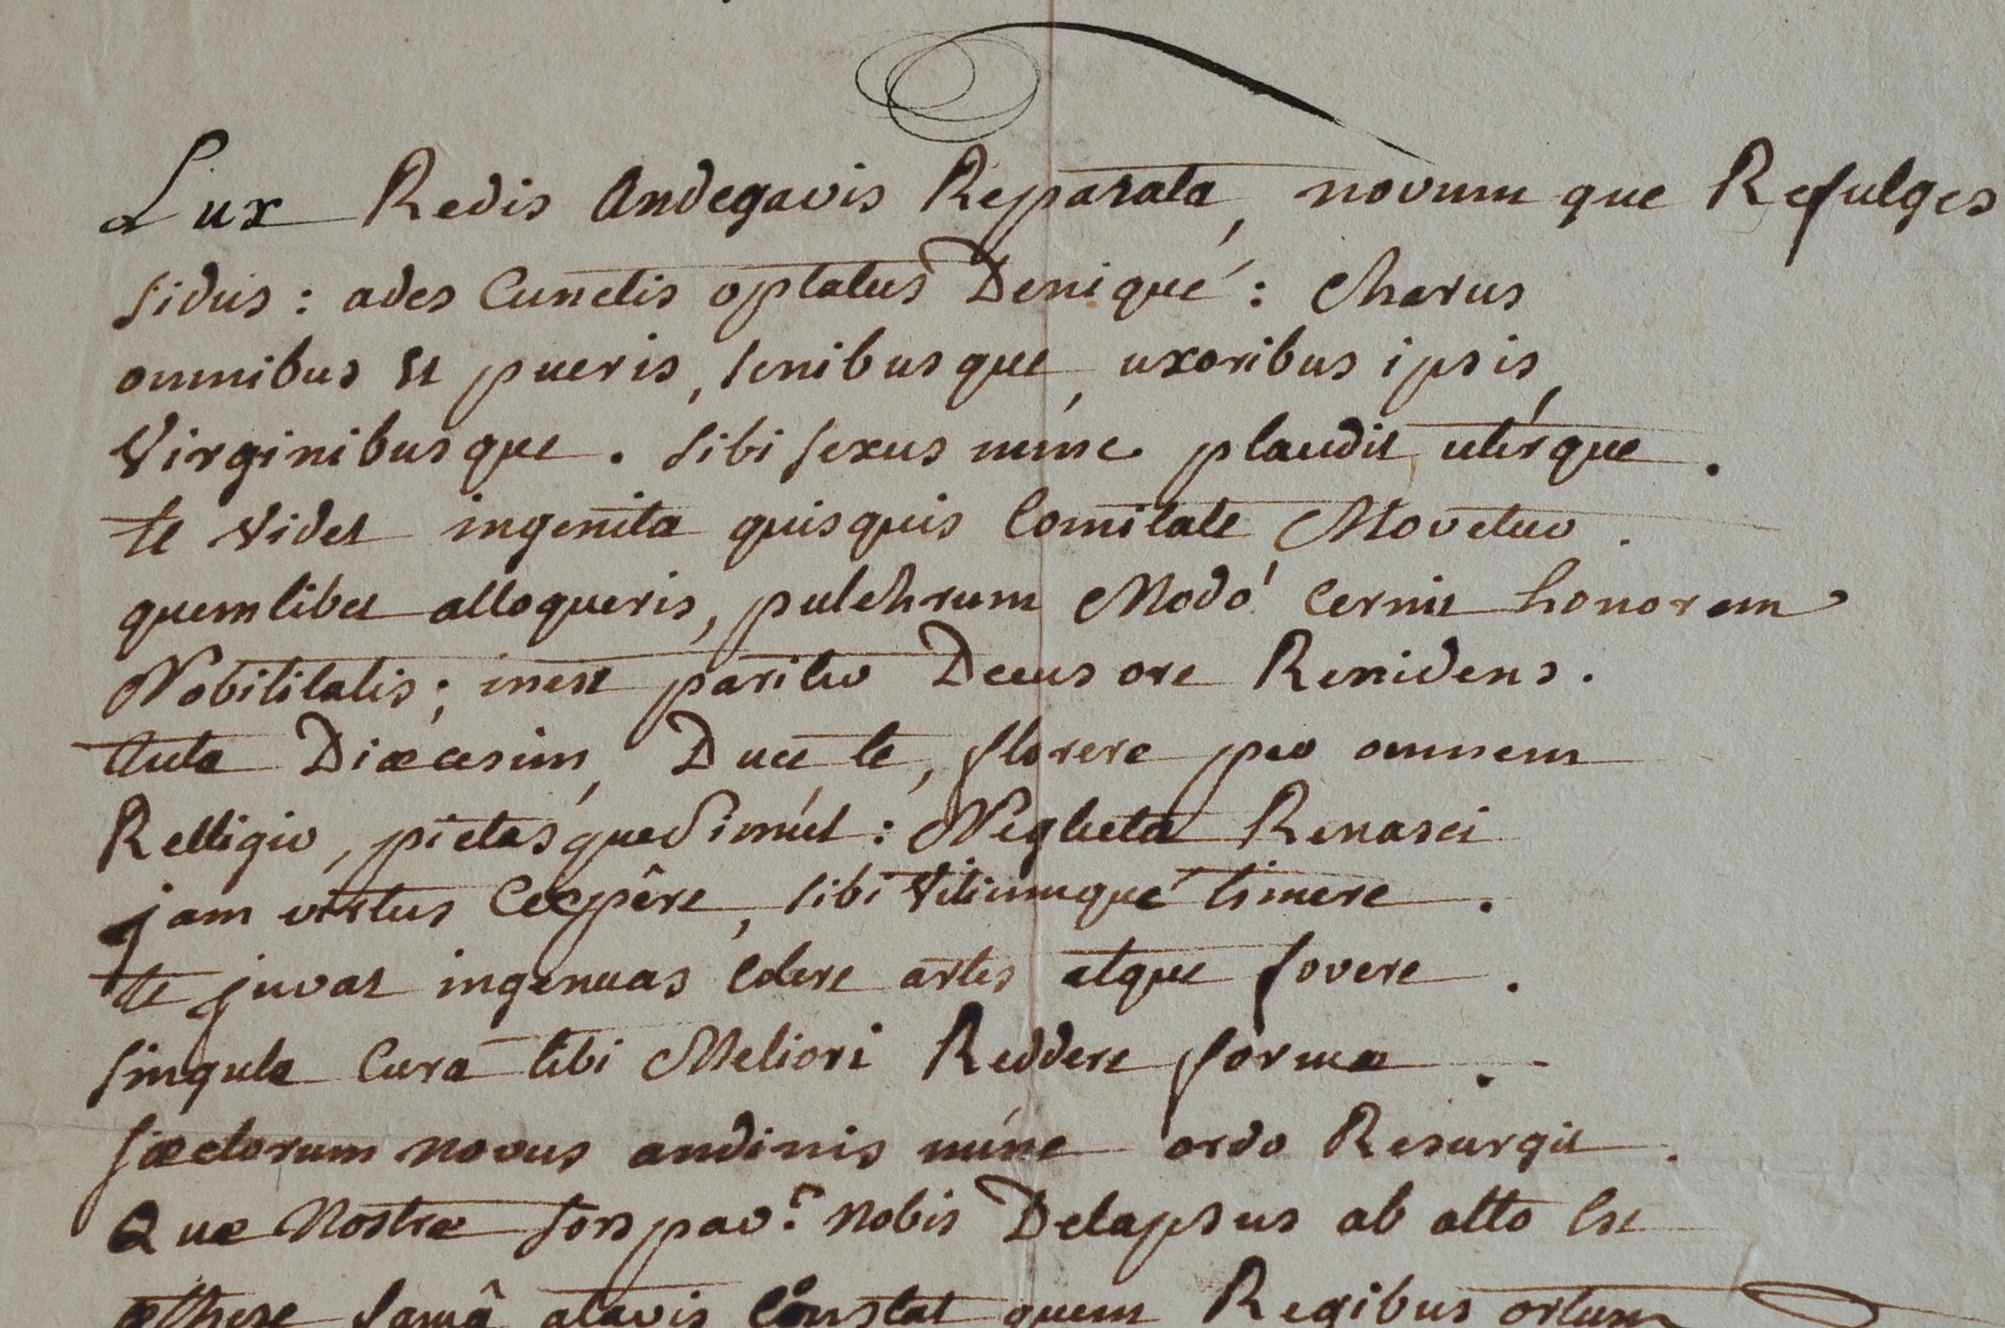 Lux Redis Andegavis Reparata, novum que Refulges
sidus : ades Cunctis optatus Deniqué : Charus
omnibus et pueris, senibusque, uxoribus ipsis,
Virginibusque . sibi sexus núnc plaudit utérque .
te videt ingenita quisquis Comitate Movetur .
quemlibet alloqueris, pulchrum Modó cernit honorem
Nobilitatis ; inest pariter Decus ore Renidens .
tuta Diœcesim, Duce te, florere per omnem
Relligio, pietasque Simúl : Neglecta Renasci
jam virtus Cœpêre, sibi Vitiumqué timere .
te juvat ingenuas Edere artes atque fovere .
singula Cura tibi Meliori Reddere forma .
sæclorum novus andinis núnc ordo Resurgit .
Quæ Nostræ sors par ? Nobis Delapsus ab alto Est
æthere famâ atavis Constat quem Regibus ortum